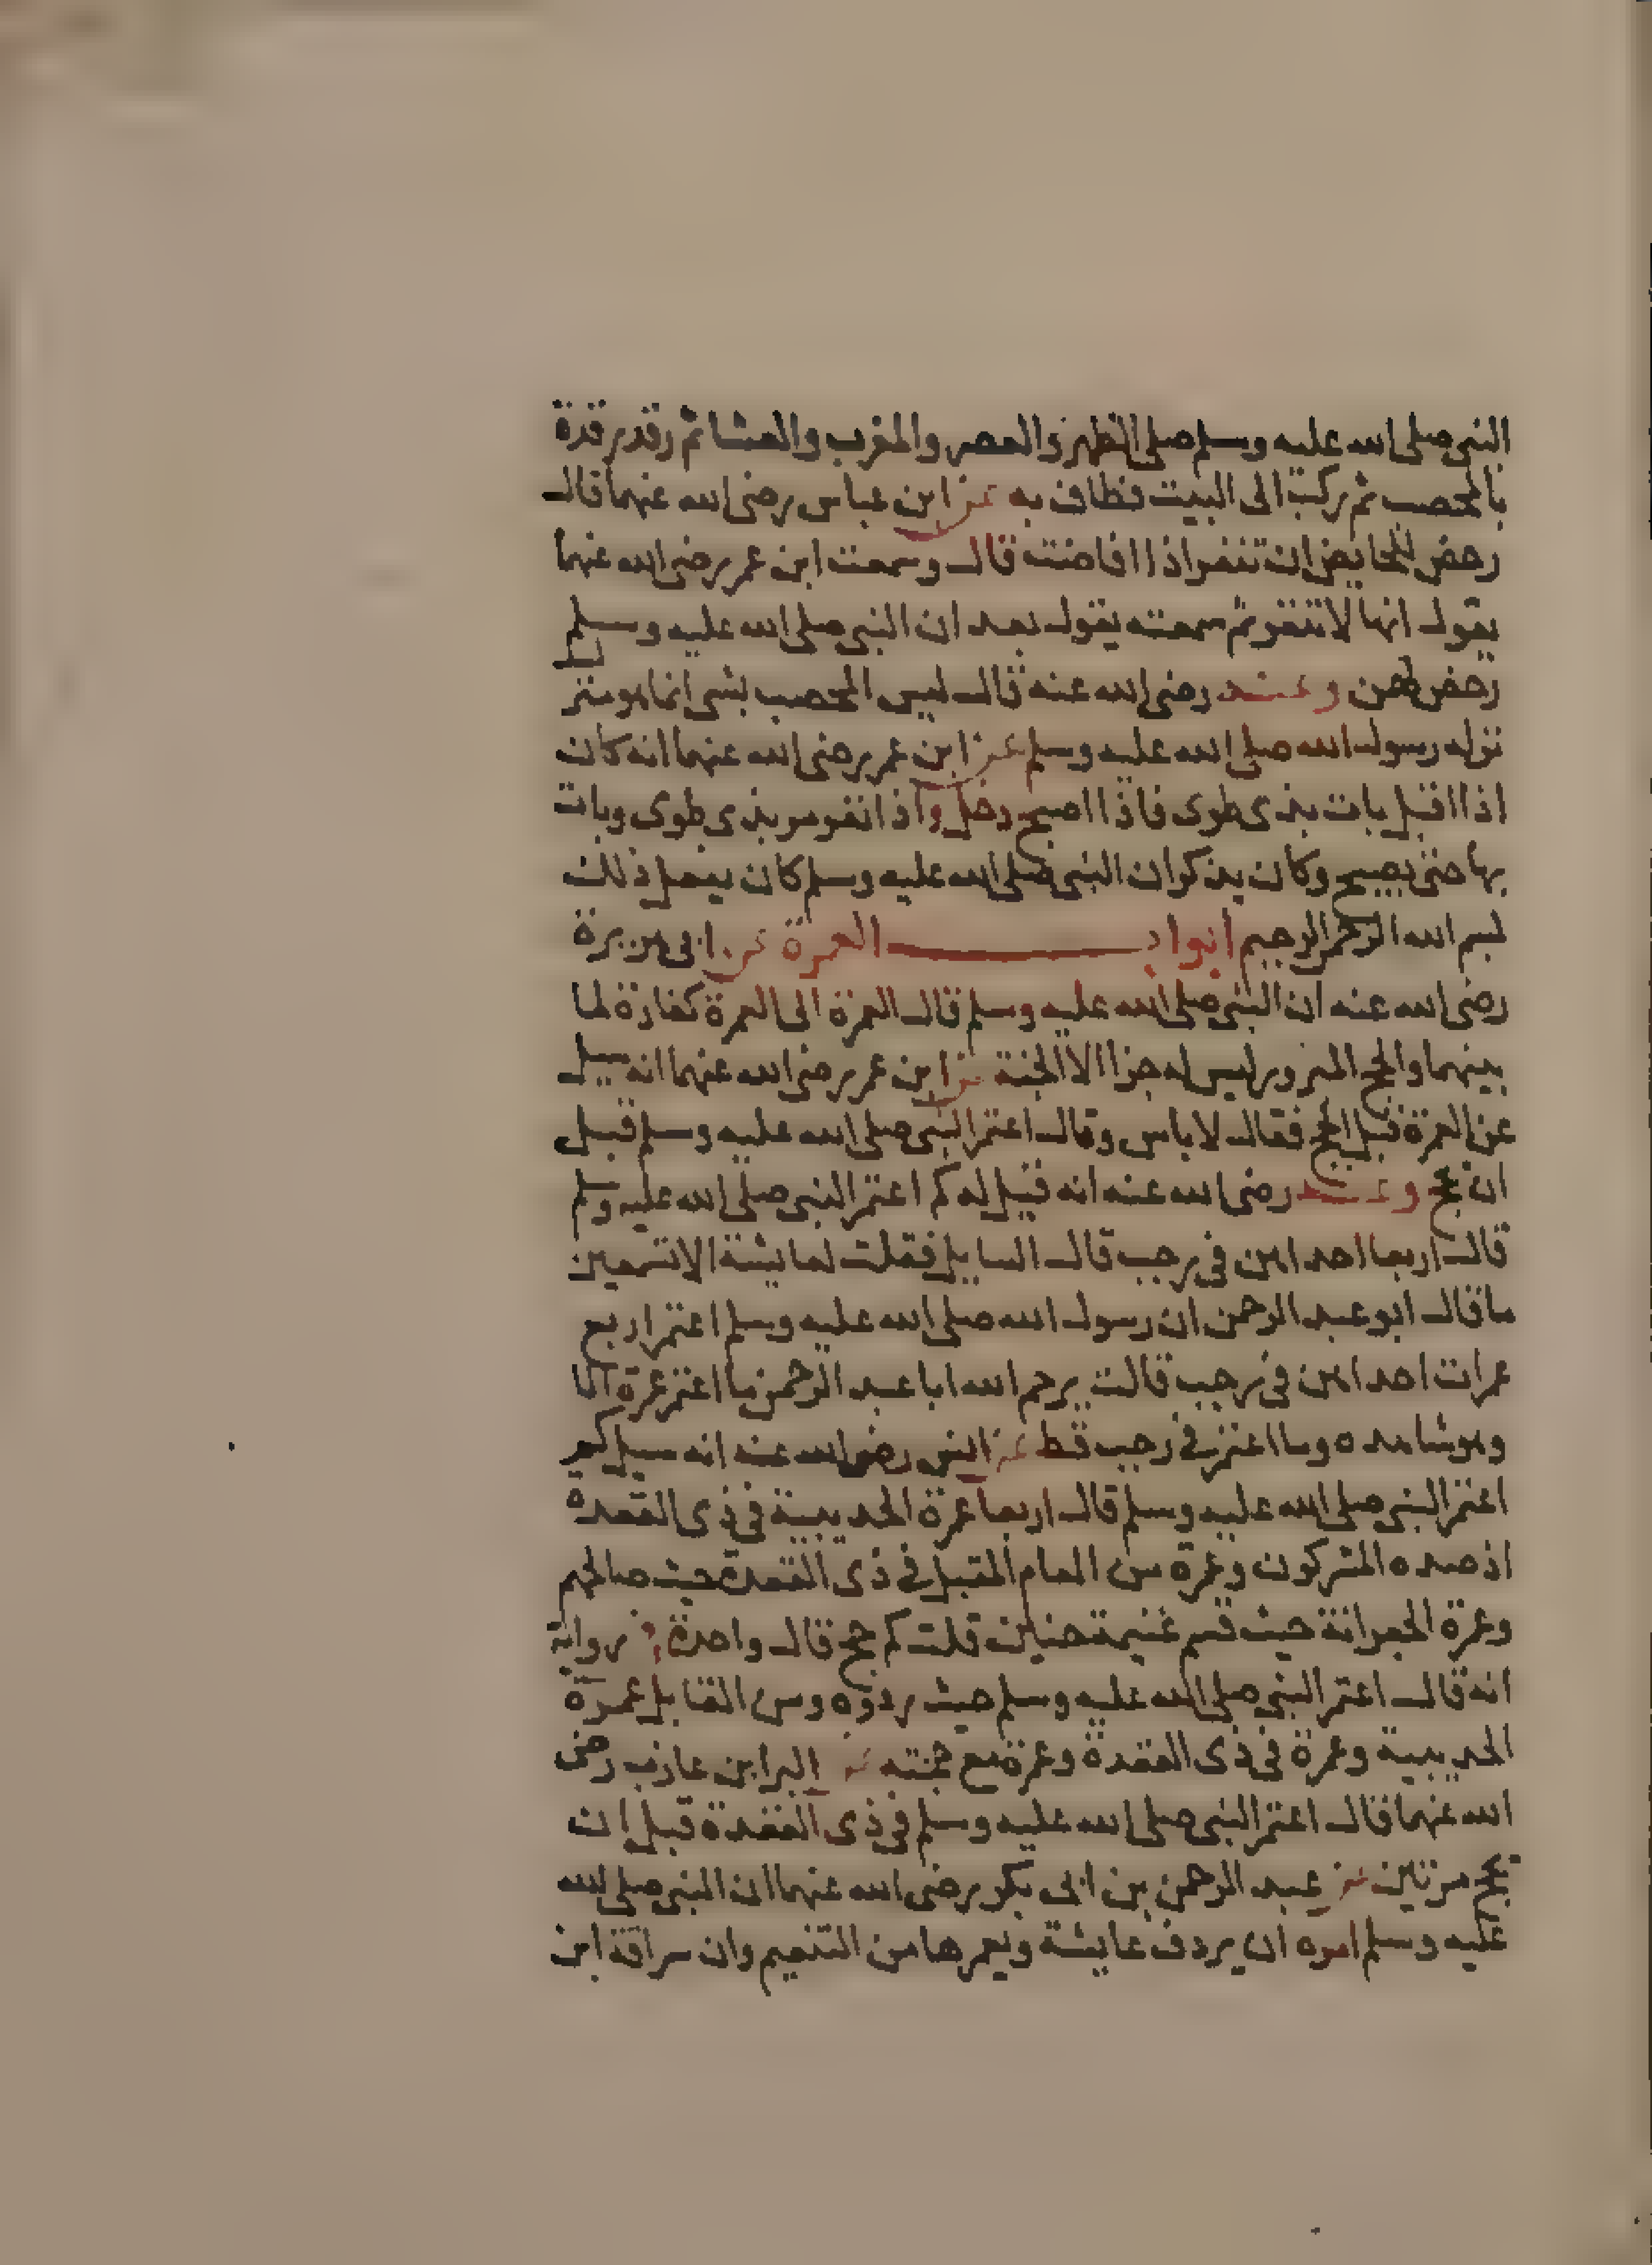 النبي صلى الله عليه وسلم صلى الظهر والعصر والمغرب والعشا ثم رقد رقدة
بالمحصب ثم ركب الى البيت فطاف به عن ابن عباس رضى الله عنهما قال
رخص للحايض ان تنفر اذا افاضت قال وسمعت ابن عمر رضى الله عنهما
يقول انها لا تنفر ثم سمعته يقول بعد ان النبي صلى الله عليه وسلم
رخص لهن وعنه رضى الله عنه قال ليس المحصب بشى انما هو منزل
نزله رسول الله صلى الله عليه وسلم عن ابن عمر رضى الله عنهما انه كان
اذا اقبل بات بذى طوى فاذا اصبح دخل واذا نفر مر بذى طوى وبات
بها حتى يصبح وكان يذكر ان النبي صلى الله عليه وسلم كان يفعل ذلك
بسم الله الرحمن الرحيم ابواب العمرة عن ابى هريرة
رضى الله عنه ان النبي صلى الله عليه وسلم قال العمرة الى العمرة كفارة لما
بينهما والحج المبرور ليس له جزا الا الجنة عن ابن عمر رضى الله عنهما انه سيل
عن العمرة قبل الحج فقال لا باس وقال اعتمر النبي صلى الله عليه وسلم قبل
ان يحج وعنه رضى الله عنه انه قيل له كم اعتمر النبي صلى الله عليه وسلم
قال اربعا احداهن في رجب قال السايل فقلت لعايشة الا تسمعين
ما قال ابو عبد الرحمن ان رسول الله صلى الله عليه وسلم اعتمر اربع
عمرات احداهن في رجب قالت يرحم الله ابا عبد الرحمن ما اعتمر عمرة الا
وهو شاهده وما اعتمر في رجب قط عن انس رضى الله عنه انه سيل كم
اعتمر النبي صلى الله عليه وسلم قال اربعا عمرة الحديبية في ذى القعدة
اذ صده المشركون وعمرة من العام المقبل في ذى القعدة حيث صالحهم
وعمرة الجعرانة حيث قسم غنيمة حنين قلت كم حج قال واحدة وفي رواية
انه قال اعتمر النبي صلى الله عليه وسلم حيث ردوه ومن القابل عمرة
الحديبية وعمرة في ذى القعدة وعمرة مع حجته عن البرا بن عازب رضى
الله عنهما قال اعتمر النبي صلى الله عليه وسلم في ذى القعدة قبل ان
يحج مرتين عن عبد الرحمن بن ابى بكر رضى الله عنهما ان النبي صلى الله
عليه وسلم امره ان يردف عايشة ويعمرها من التنعيم وان سراقة ابن